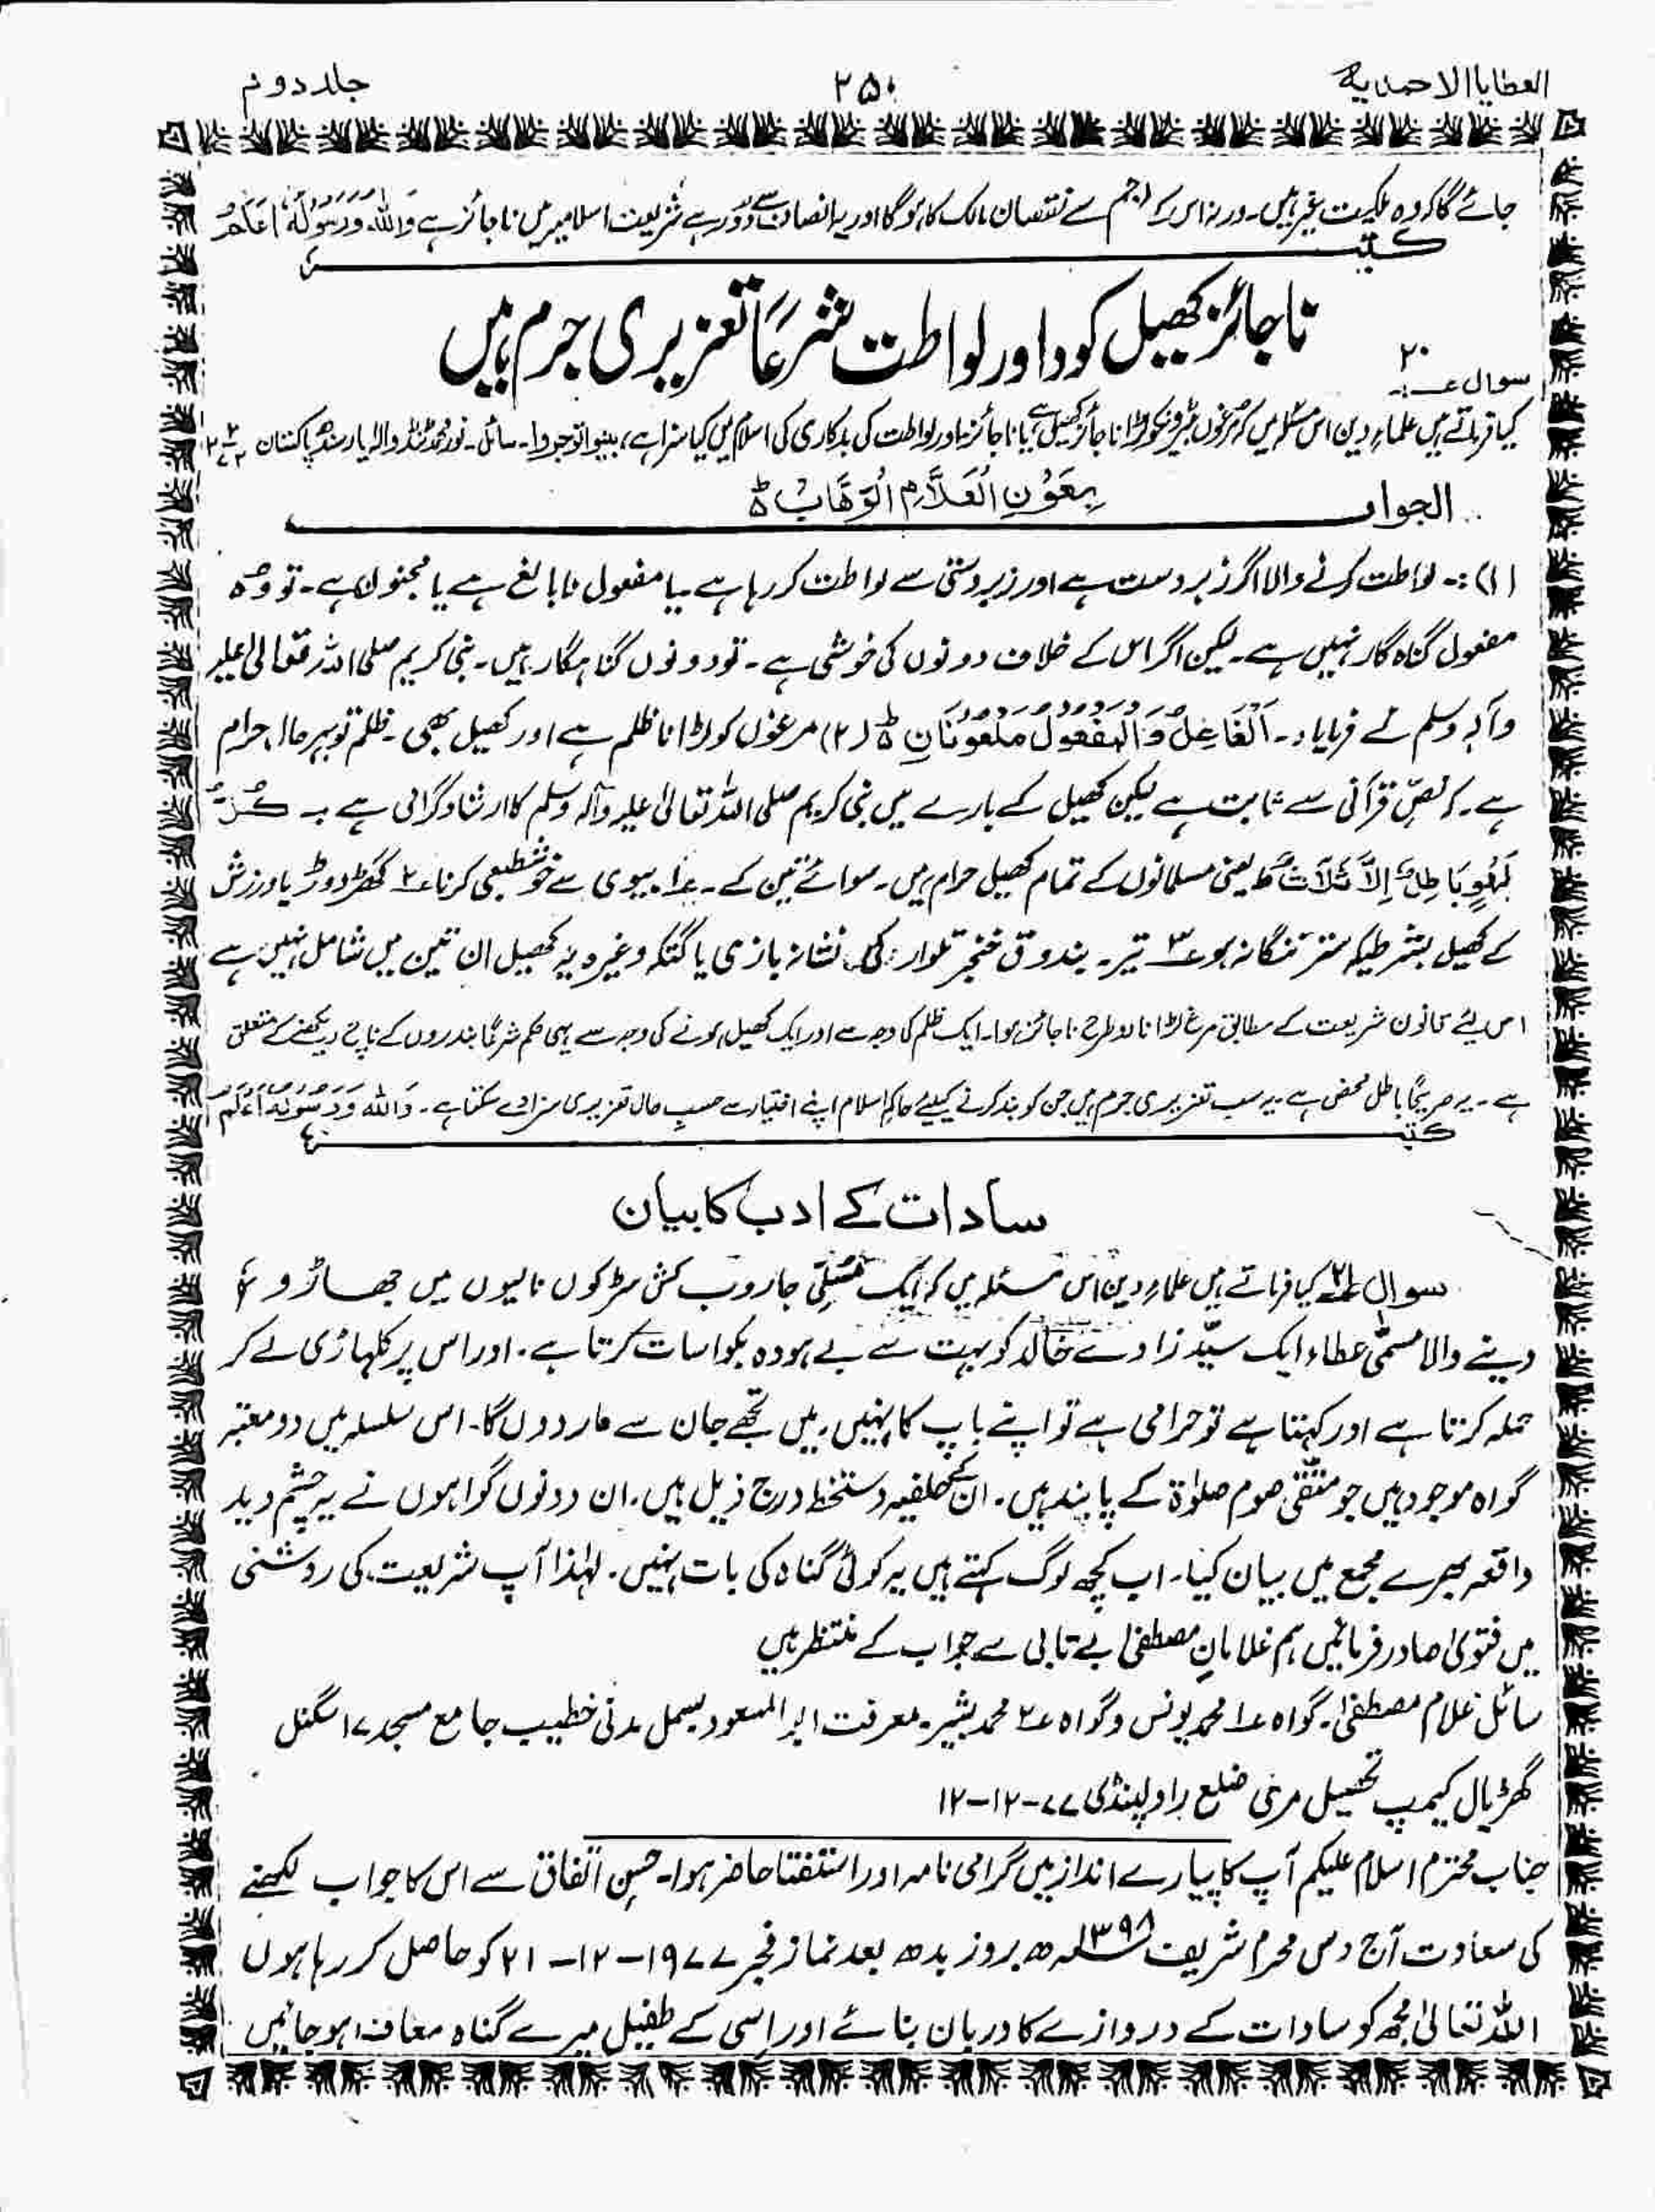 العطایا الاحمدیہ
۲۵۰
جلد دوم
جائے گا کہ وہ ملکیت غیر ہیں۔ ورنہ اس کے جرم سے نقصان مالک کا ہو گا اور یہ انصاف سے دور ہے شریعت اسلامیہ میں ناجائز ہے وَاللّٰہُ وَرَسُوْلُہٗ اَعْلَمُ
کتبہ
ناجائز کھیل کود اور لواطت شرعًا تعزیری جرم ہیں
سوال ۲۰
کیا فرماتے ہیں علماءِ دین اس مسئلہ میں کہ مرغوں بٹیروں کو لڑانا جائز کھیل ہے یا ناجائز، اور لواطت کی بدکاری کی اسلام میں کیا سزا ہے، بینوا توجروا۔ سائل۔ نور محمد ٹنڈو والہ یار سندھ پاکستان
الجواب بِعَوْنِ الْعَلَّامِ الْوَھَّابْ ط
(۱):۔ لواطت کرنے والا اگر زبردست ہے اور زبردستی سے لواطت کر رہا ہے۔ یا مفعول نابالغ ہے یا مجنون ہے۔ تو وہ
مفعول گناہ گار نہیں ہے۔ لیکن اگر اس کے خلاف دونوں کی خوشی ہے۔ تو دونوں گناہگار ہیں۔ نبی کریم صلی اللہ تعالیٰ علیہ
وآلہ وسلم نے فرمایا:۔ اَلْفَاعِلُ وَالْمَفْعُوْلُ مَلْعُوْنَانِ ط (۲) مرغوں کو لڑانا ظلم ہے اور کھیل بھی۔ ظلم تو بہر حال حرام
ہے۔ کہ نصِّ قرآنی سے ثابت ہے لیکن کھیل کے بارے میں نبی کریم صلی اللہ تعالیٰ علیہ وآلہ وسلم کا ارشاد گرامی ہے :۔ کُلُّ
لَہْوٍ بَاطِلٌ اِلَّا ثَلَاثٌ ط یعنی مسلمانوں کے تمام کھیل حرام ہیں۔ سوائے تین کے۔ ۱؎ بیوی سے خوش طبعی کرنا ۲؎ گھڑ دوڑ یا ورزش
کے کھیل بشرطیکہ ستر ننگا نہ ہو ۳؎ تیر۔ بندوق خنجر تلوار کی نشانہ بازی یا گتکہ وغیرہ یہ کھیل ان تین میں شامل نہیں ہے
اس لیے قانون شریعت کے مطابق مرغ لڑانا دو طرح ناجائز ہوا۔ ایک ظلم کی وجہ سے اور ایک کھیل ہونے کی وجہ سے یہی حکم شرعًا بندروں کے ناچ دیکھنے کے متعلق
ہے۔ یہ صریحًا باطل محض ہے۔ یہ سب تعزیری جرم ہیں جن کو بند کرنے کیلئے حاکمِ اسلام اپنے اختیار سے حسبِ حال تعزیری سزا دے سکتا ہے۔ وَاللّٰہُ وَرَسُوْلُہٗ اَعْلَمُ
کتبہ
سادات کے ادب کا بیان
سوال ۲۱ کیا فرماتے ہیں علماءِ دین اس مسئلہ میں کہ ایک مُصَلّی جاروب کش سڑکوں نالیوں میں جھاڑو
دینے والا مسمّٰی عطاء ایک سیّد زادے خالد کو بہت سے بے ہودہ بکواسات کرتا ہے۔ اور اس پر کلہاڑی لے کر
حملہ کرتا ہے اور کہتا ہے تو حرامی ہے تو اپنے باپ کا نہیں۔ میں تجھے جان سے مار دوں گا۔ اس سلسلہ میں دو معتبر
گواہ موجود ہیں جو متقی صوم صلوٰۃ کے پابند ہیں۔ ان کے حلفیہ دستخط درج ذیل ہیں۔ ان دونوں گواہوں نے یہ چشم دید
واقعہ بھرے مجمع میں بیان کیا۔ اب کچھ لوگ کہتے ہیں یہ کوئی گناہ کی بات نہیں۔ لہٰذا آپ شریعت کی روشنی
میں فتویٰ صادر فرمائیں ہم غلامانِ مصطفیٰ بے تابی سے جواب کے منتظر ہیں
سائل غلام مصطفیٰ۔ گواہ ۱؎ محمد یونس و گواہ ۲؎ محمد بشیر۔ معرفت ابو المسعود بسمل مدنی خطیب جامع مسجد ۱۷ سگنل
گھڑیال کیمپ تحصیل مری ضلع راولپنڈی ۷۷-۱۲-۱۲
جناب محترم اسلام علیکم آپ کا پیارے انداز میں گرامی نامہ اور استفتا حاضر ہوا۔ حسنِ اتفاق سے اس کا جواب لکھنے
کی سعادت آج دس محرم شریف ۱۳۹۸ھ بروز بدھ بعد نماز فجر ۱۹۷۷-۱۲-۲۱ کو حاصل کر رہا ہوں
اللہ تعالیٰ مجھ کو سادات کے دروازے کا دربان بنائے اور اسی کے طفیل میرے گناہ معاف ہو جائیں